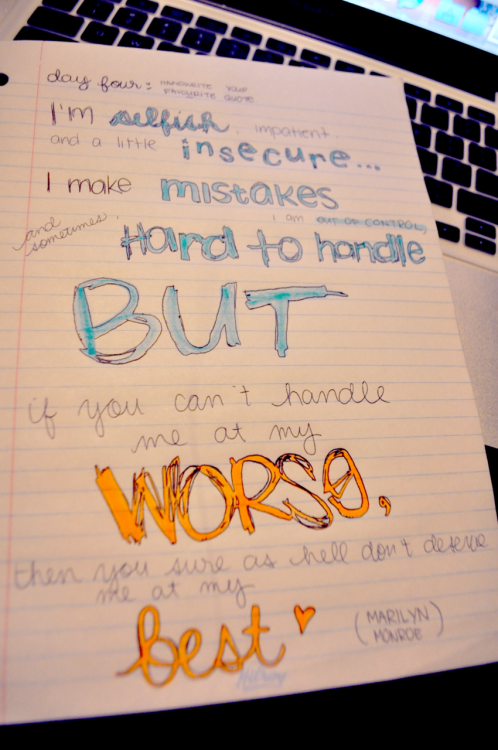 day four: HANDWRITE YOUR
FAVOURITE QUOTE
I'm selfish, impatient,
and a little insecure...
I make mistakes
I am OUT OF CONTROL,
and sometimes, Hard to handle
BUT
if you can't handle
me at my
WORSE,
then you sure as hell don't deserve
me at my
best (MARILYN
MONROE)